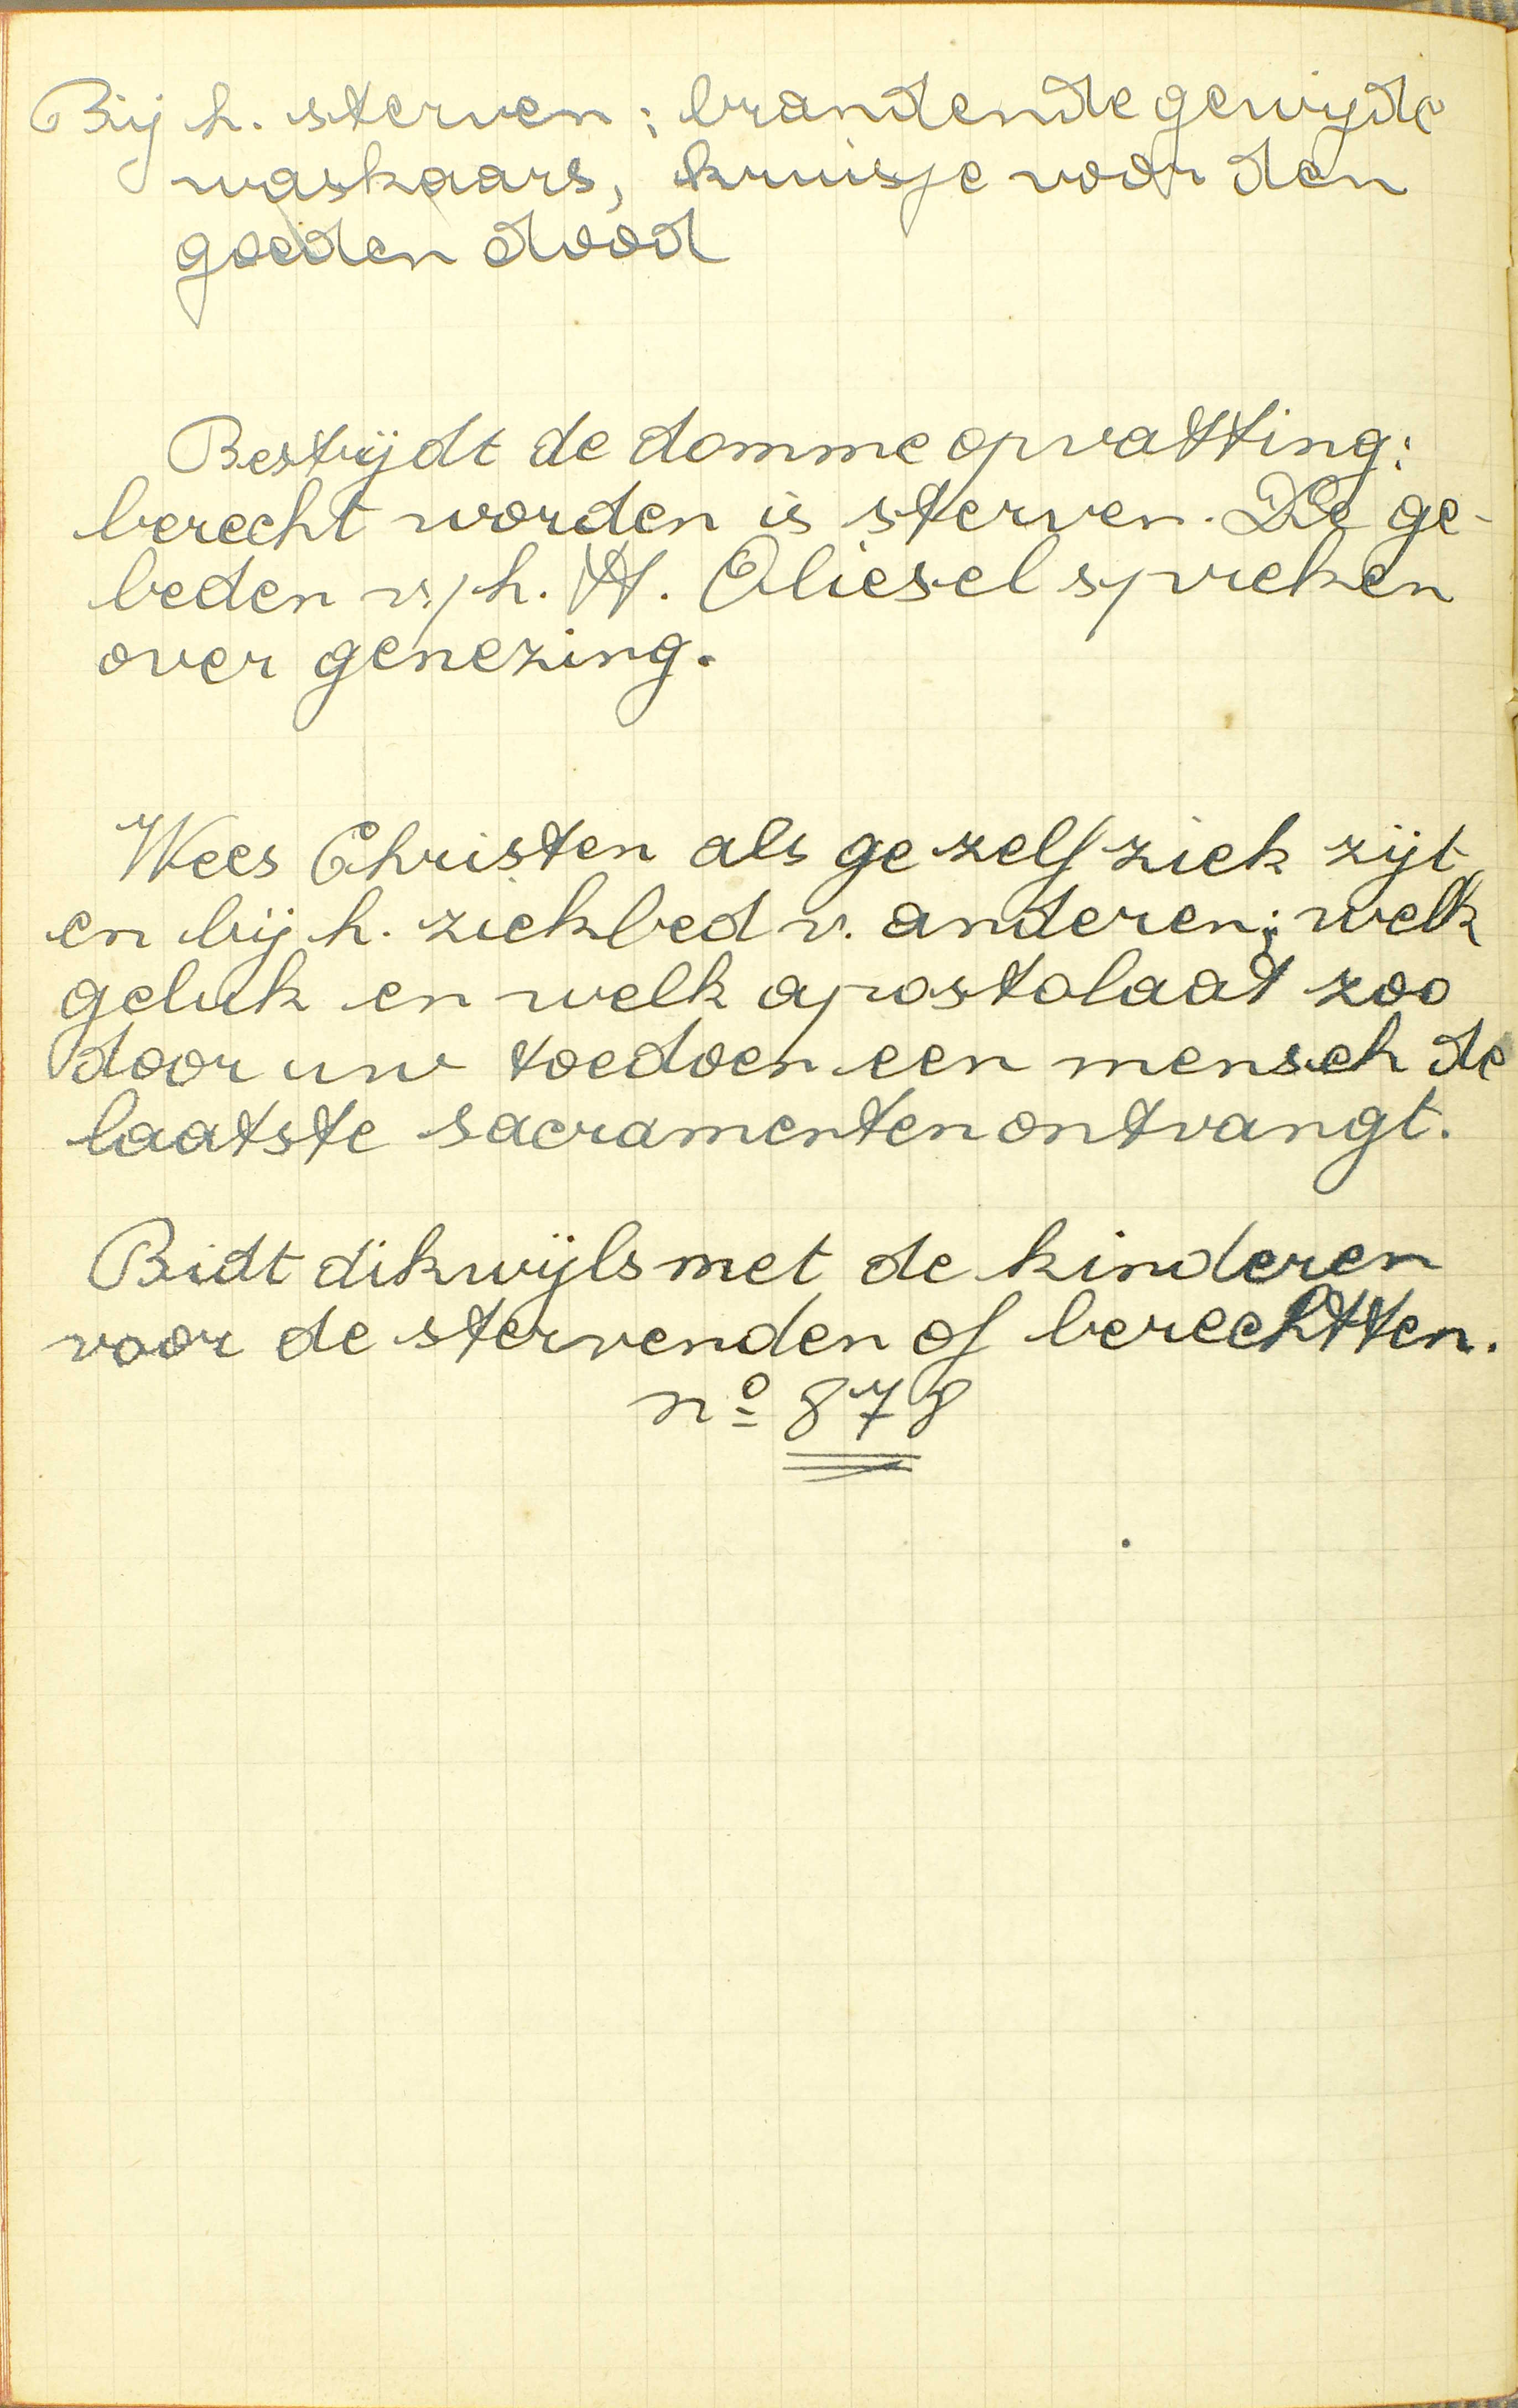 Bij h. sterven : brandende gewijde
waskaars, kruisje voor den
goeden dood
Bestrijdt de domme opvatting:
berecht worden is sterven. De ge-
beden v/h. H. Oliesel spreken
over genezing.
Wees Christen als ge zelf ziek zijt
en bij h. ziekbed v. anderen; welk
geluk en welk apostolaat zoo
door uw toedoen een mensch de
laatste sacramenten ontvangt.
Bidt dikwijls met de kinderen
voor de stervenden of berechtten.
nº 878